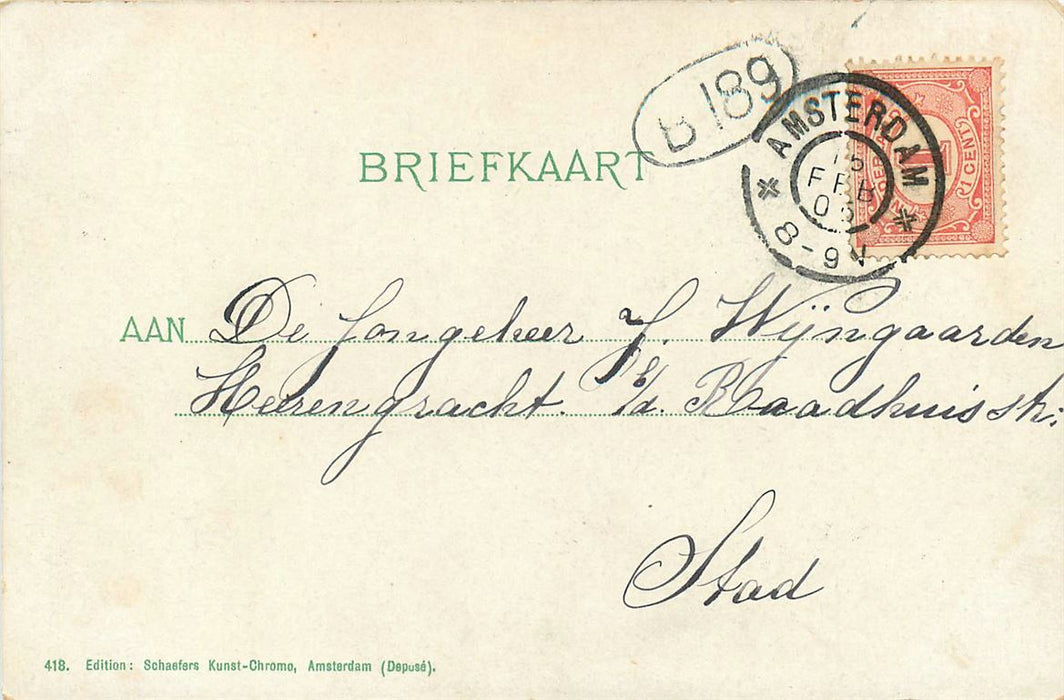 B 189
AMSTERDAM
15
FEB
8-9N
1 CENT
BRIEFKAART
AAN De Jongeheer J. Wijngaarden
Heerengracht. b/d. Raadhuisstr.
Stad
418. Edition: Schaefers Kunst-Chromo, Amsterdam (Deposé).